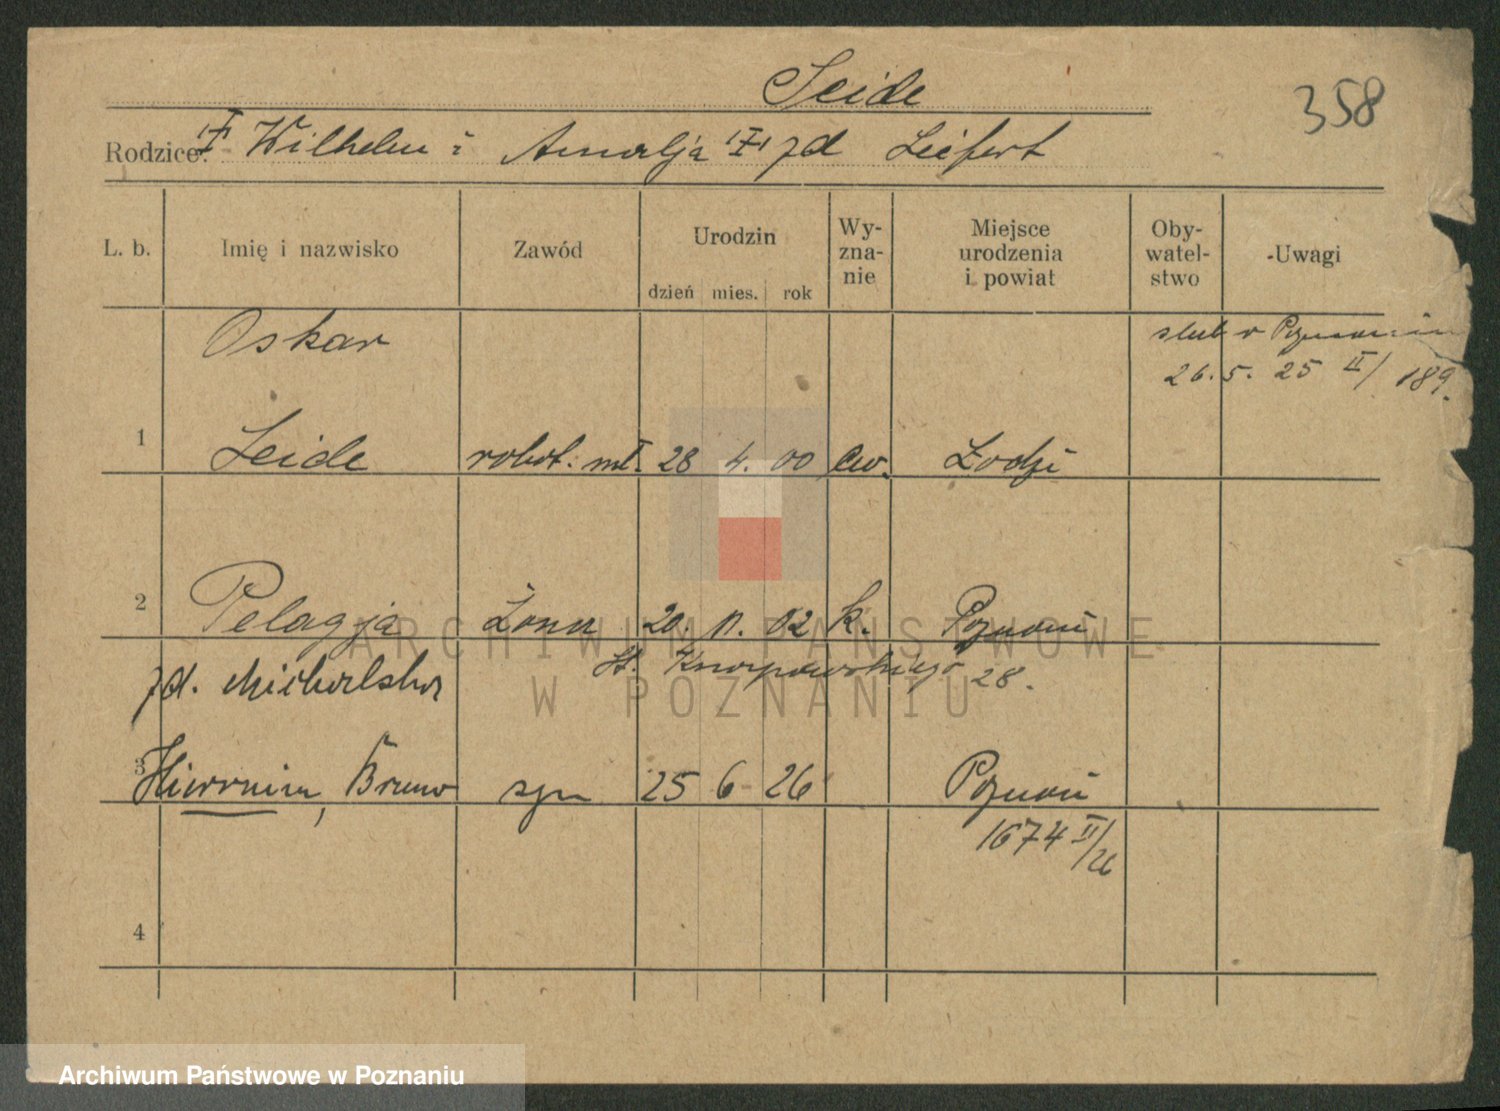 Seide
358
Rodzice: Wilhelm i Amalja zd Leifert
L. b. Imię i nazwisko Zawód Urodzin dzień mies. rok Wy- zna- nie Miejsce urodzenia i powiat Oby- watel- stwo Uwagi
Oskar
ślub w Poznaniu
26. 5. 25 II/ 189.
1 Seide robot. 28 4. 00 ew. Łodzi
2 Pelagja Żona 20 11. 02 k. Poznań
zd. Michalska
28.
3 Hieronim, Bruno syn 25 6 26 Poznań
1674 II/26
4
ARCHIWUM PAŃSTWOWE
W POZNANIU
Archiwum Państwowe w Poznaniu